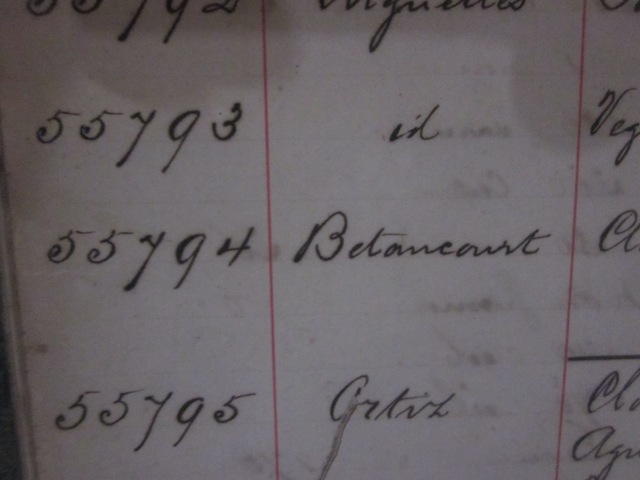 55792
55793 id Veg
55794 Betancourt Cl
55795 Ortiz Cla
Agu